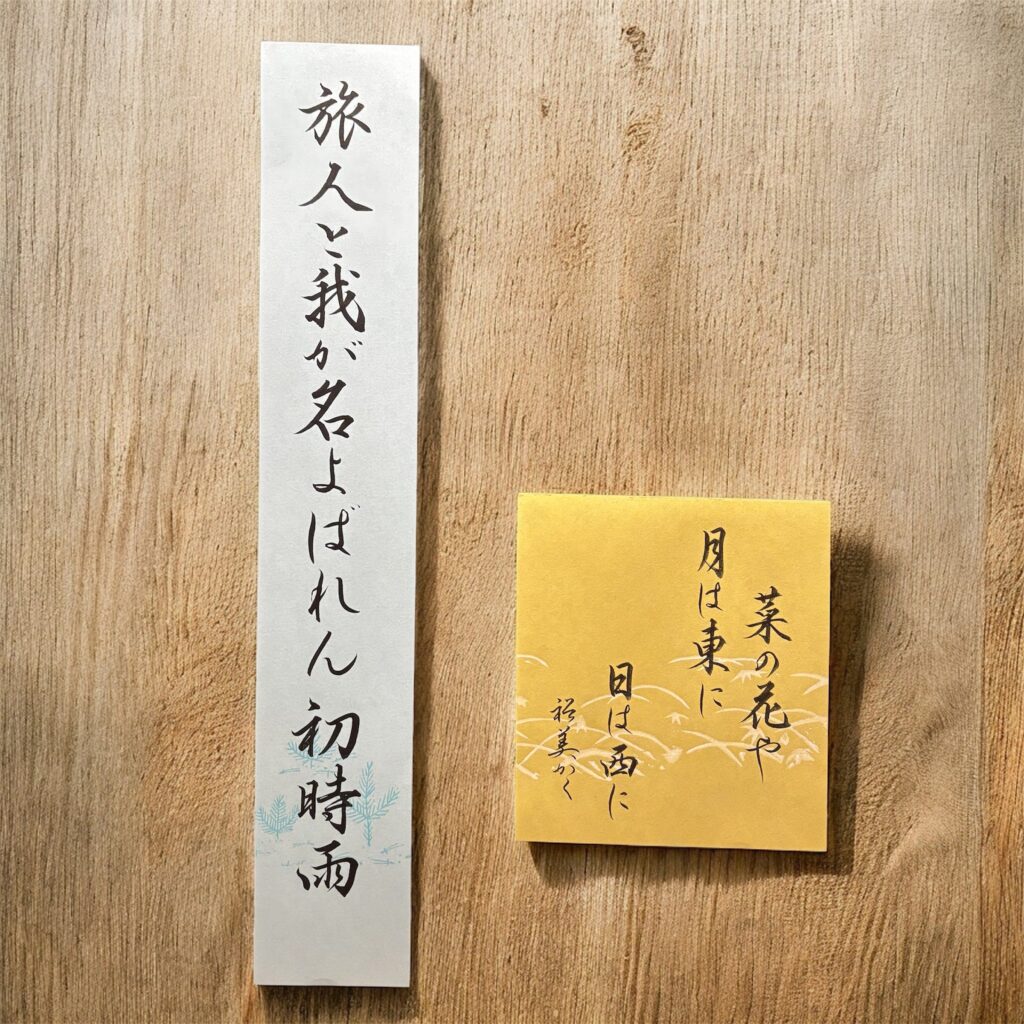 旅人と我が名よばれん初時雨
菜の花や
月は東に
日は西に
裕美かく